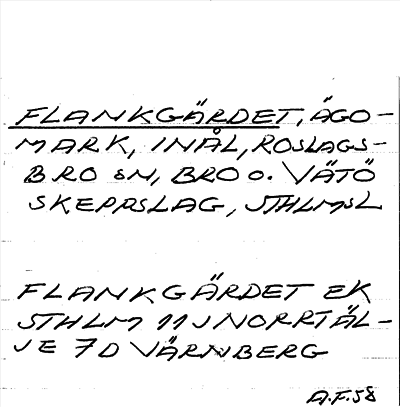 FLANKGÄRDET, ÄGO-
MARK, INÅL, ROSLAGS-
BRO SN, BRO O. VÄTÖ
SKEPPSLAG, STHLMSL
FLANKGÄRDET EK
STHLM 11J NORRTÄL-
JE 7D VÄRNBERG
A.F. 58